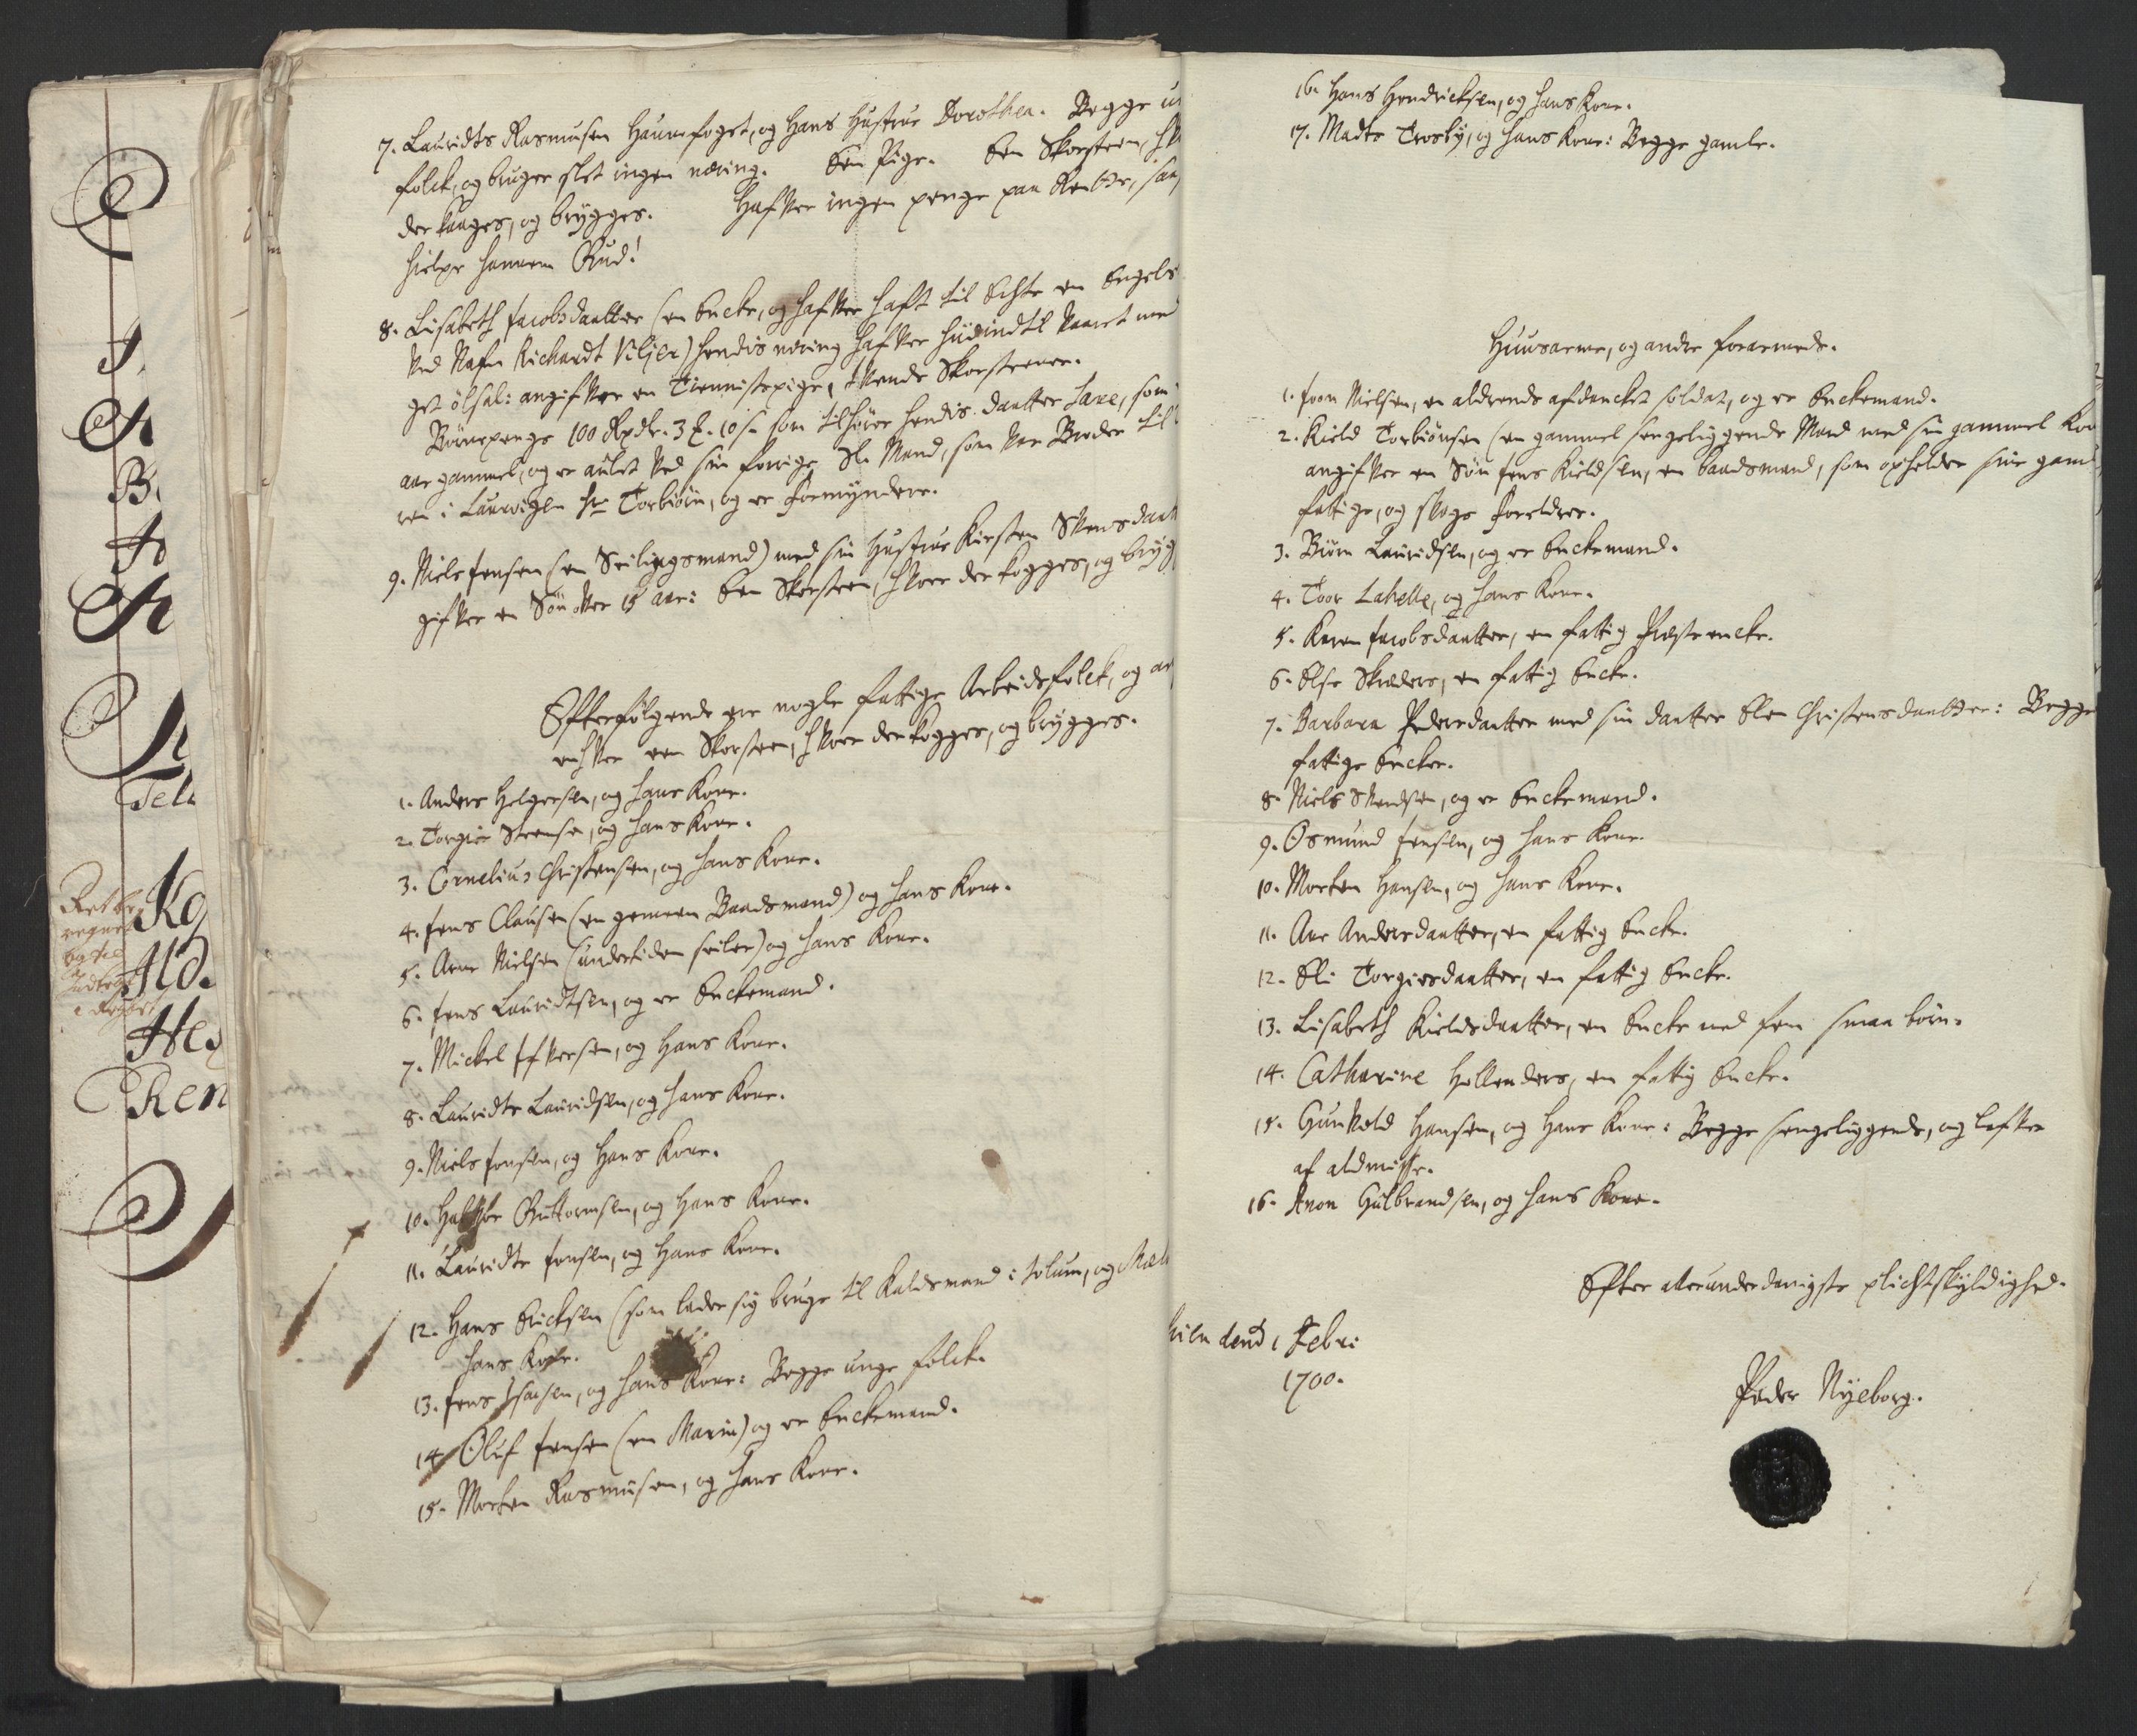 7. Lauridts Rasmusen Haunefoget, og Hans Hustrue Dorothea. Begge
folck, og bruger slet ingen næring. Een Pige. Een Skorsteen,
der kaages, og brygges. Hafver ingen penge paa Rentte,
hielpe hannem Gud!
8. Lisabeth Jacobsdaatter (en Encke, og hafver hafft til Echte en Engels
ved Nafn Richardt Viljer) hendis næring hafver hidindtil været med
get ölsal: angifver en Tiennistepige, tvende Skorsteener.
Börnepenge 100 Rixdr. 3 . 10 s. som tilhörer hendis daatter Lane, som
aar gammel, og er aulet ved sin forrige Sl. Mand, som var Broder til
ren i Laurvigen hr Torbiörn, og er formyndere.
9. Niels Jensen (en Seilingsmand) med sin Hustrue Kirsten Svens
gifver en Sön over 15 aar: Een Skorsteen, hvor der kogges, og bryg
Efterfölgende ere nogle fattige Arbeidsfolck, og
enhver een Skorsteen, hvor der kogges, og brygges.
1. Anders Helgersen, og hans Kone.
2. Torgier Steensen, og hans Kone.
3. Cornelius Christensen, og hans Kone.
4. Jens Clausen (en gemeen Baadsmand) og hans Kone.
5. Arne Nielsen (undertiden seiler) og hans Kone.
6. Jens Lauridtsen, og er Enckemand.
7. Mickel Ifversen, og Hans Kone.
8. Lauridts Lauridsen, og hans Kone.
9. Niels Jonsen, og Hans Kone.
10. Guttormsen, og Hans Kone.
11. Lauridts Jonsen, og Hans Kone.
12. Hans Ericksen (som lader sig bruge til Kaldsmand i Solum, og
hans Kone.
13. Jens Isacsen, og hans Kone: Begge unge folck.
14. Oluf Jensen (en Marin) og er Enckemand.
15. Morten Rasmusen, og hans Kone.
16. Hans Hendricksen, og hans Kone.
17. Madts Trosby, og hans Kone: Begge gamle.
Huusarme, og andre forarmede.
1. Joon Nielsen, en aldrende afdancket soldat, og er Enckemand.
2. Kield Torbiönsen (en gammel sengeliggende Mand med sin gammel Kon
angifver en Sön Jens Kieldsen, en baadsmand, som opholder sine gam
fattige, og svage foreldrer.
3. Biörn Lauridsen, og er Enckemand.
4. Toor Lahelle, og hans Kone.
5. Karen Jacobsdaatter, en fattig Præsteencke.
6. Else Skræders, en fattig Encke.
7. Barbara Pedersdaatter med sin daatter Elen Christensdaatter: Begge
fattige Encker.
8. Niels Svendsen, og er Enckemand.
9. Osmund Jensen, og hans Kone.
10. Morten Hansen, og hans Kone.
11. Ane Andersdaatter, en fattig Encke.
12. Eli Torgiersdaatter, en fattig Encke.
13. Lisabeth Kieldsdaatter, en Encke med fem smaa börn.
14. Catharine Hollenders, en fattig Encke.
15. Gunvold Hansen, og Hans Kone: Begge sengeliggende, og lefver
af aldmisse.
16. Anon Gulbrandsen, og hans Kone.
Efter allerunderdanigste plichtskyldighed.
dend 1 Febr:
1700.
Peder Nyeborg.